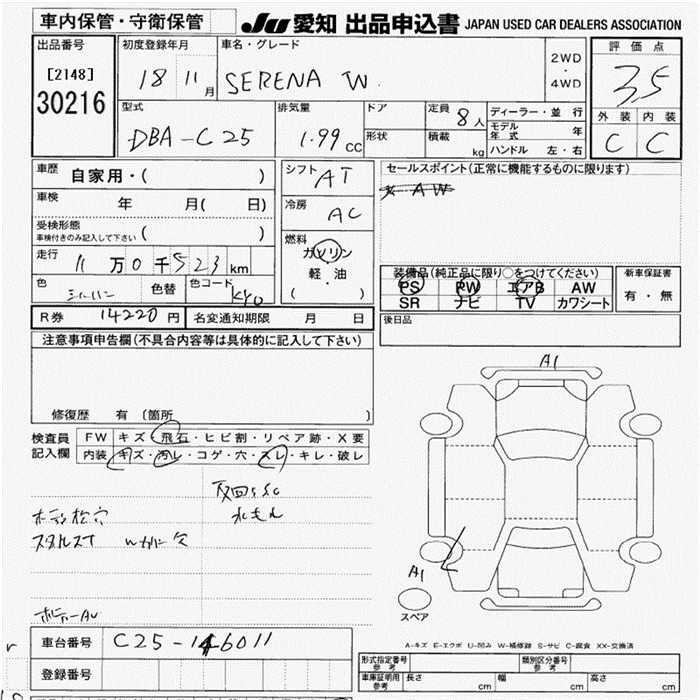 車内保管・守衛保管
JU 愛知 出品申込書 JAPAN USED CAR DEALERS ASSOCIATION
出品番号
[2148]
30216
初度登録年月
18 11月
車名・グレード
SERENA W.
2WD
・
4WD
評価点
3.5
外装 内装
C C
型式
DBA-C25
排気量
1.99 CC
ドア
形状
定員 8人
積載 kg
ディーラー・並行
モデル年式 年
ハンドル 左・右
車歴 自家用・( )
車検 年 月( 日)
受検形態
車検付きのみ記入して下さい ( )
走行 11万0千523km
色 シルバー 色替
色コード KY0
シフト AT
冷房 AC
燃料
ガソリン
軽・油
( )
セールスポイント(正常に機能するものに限ります)
AW
装備品(純正品に限り○をつけてください)
PS PW エアB AW
SR ナビ TV カワシート
新車保証書
有・無
後日品
R券 14220円 名変通知期限 月 日
注意事項申告欄(不具合内容等は具体的に記入して下さい)
修復歴 有 〔箇所 〕
検査員
記入欄
FW キズ・飛石・ヒビ割・リペア跡・X要
内装 キズ・汚レ・コゲ・穴・スレ・キレ・破レ
A1
A1
スペア
A-キズ E-エクボ U-凹み W-補修跡 S-サビ C-腐食 XX-交換済
車台番号 C25-146011
登録番号
形式指定番号 参考
類別区分番号 参考
車庫証明用 参考 長さ cm 幅 cm 高さ cm